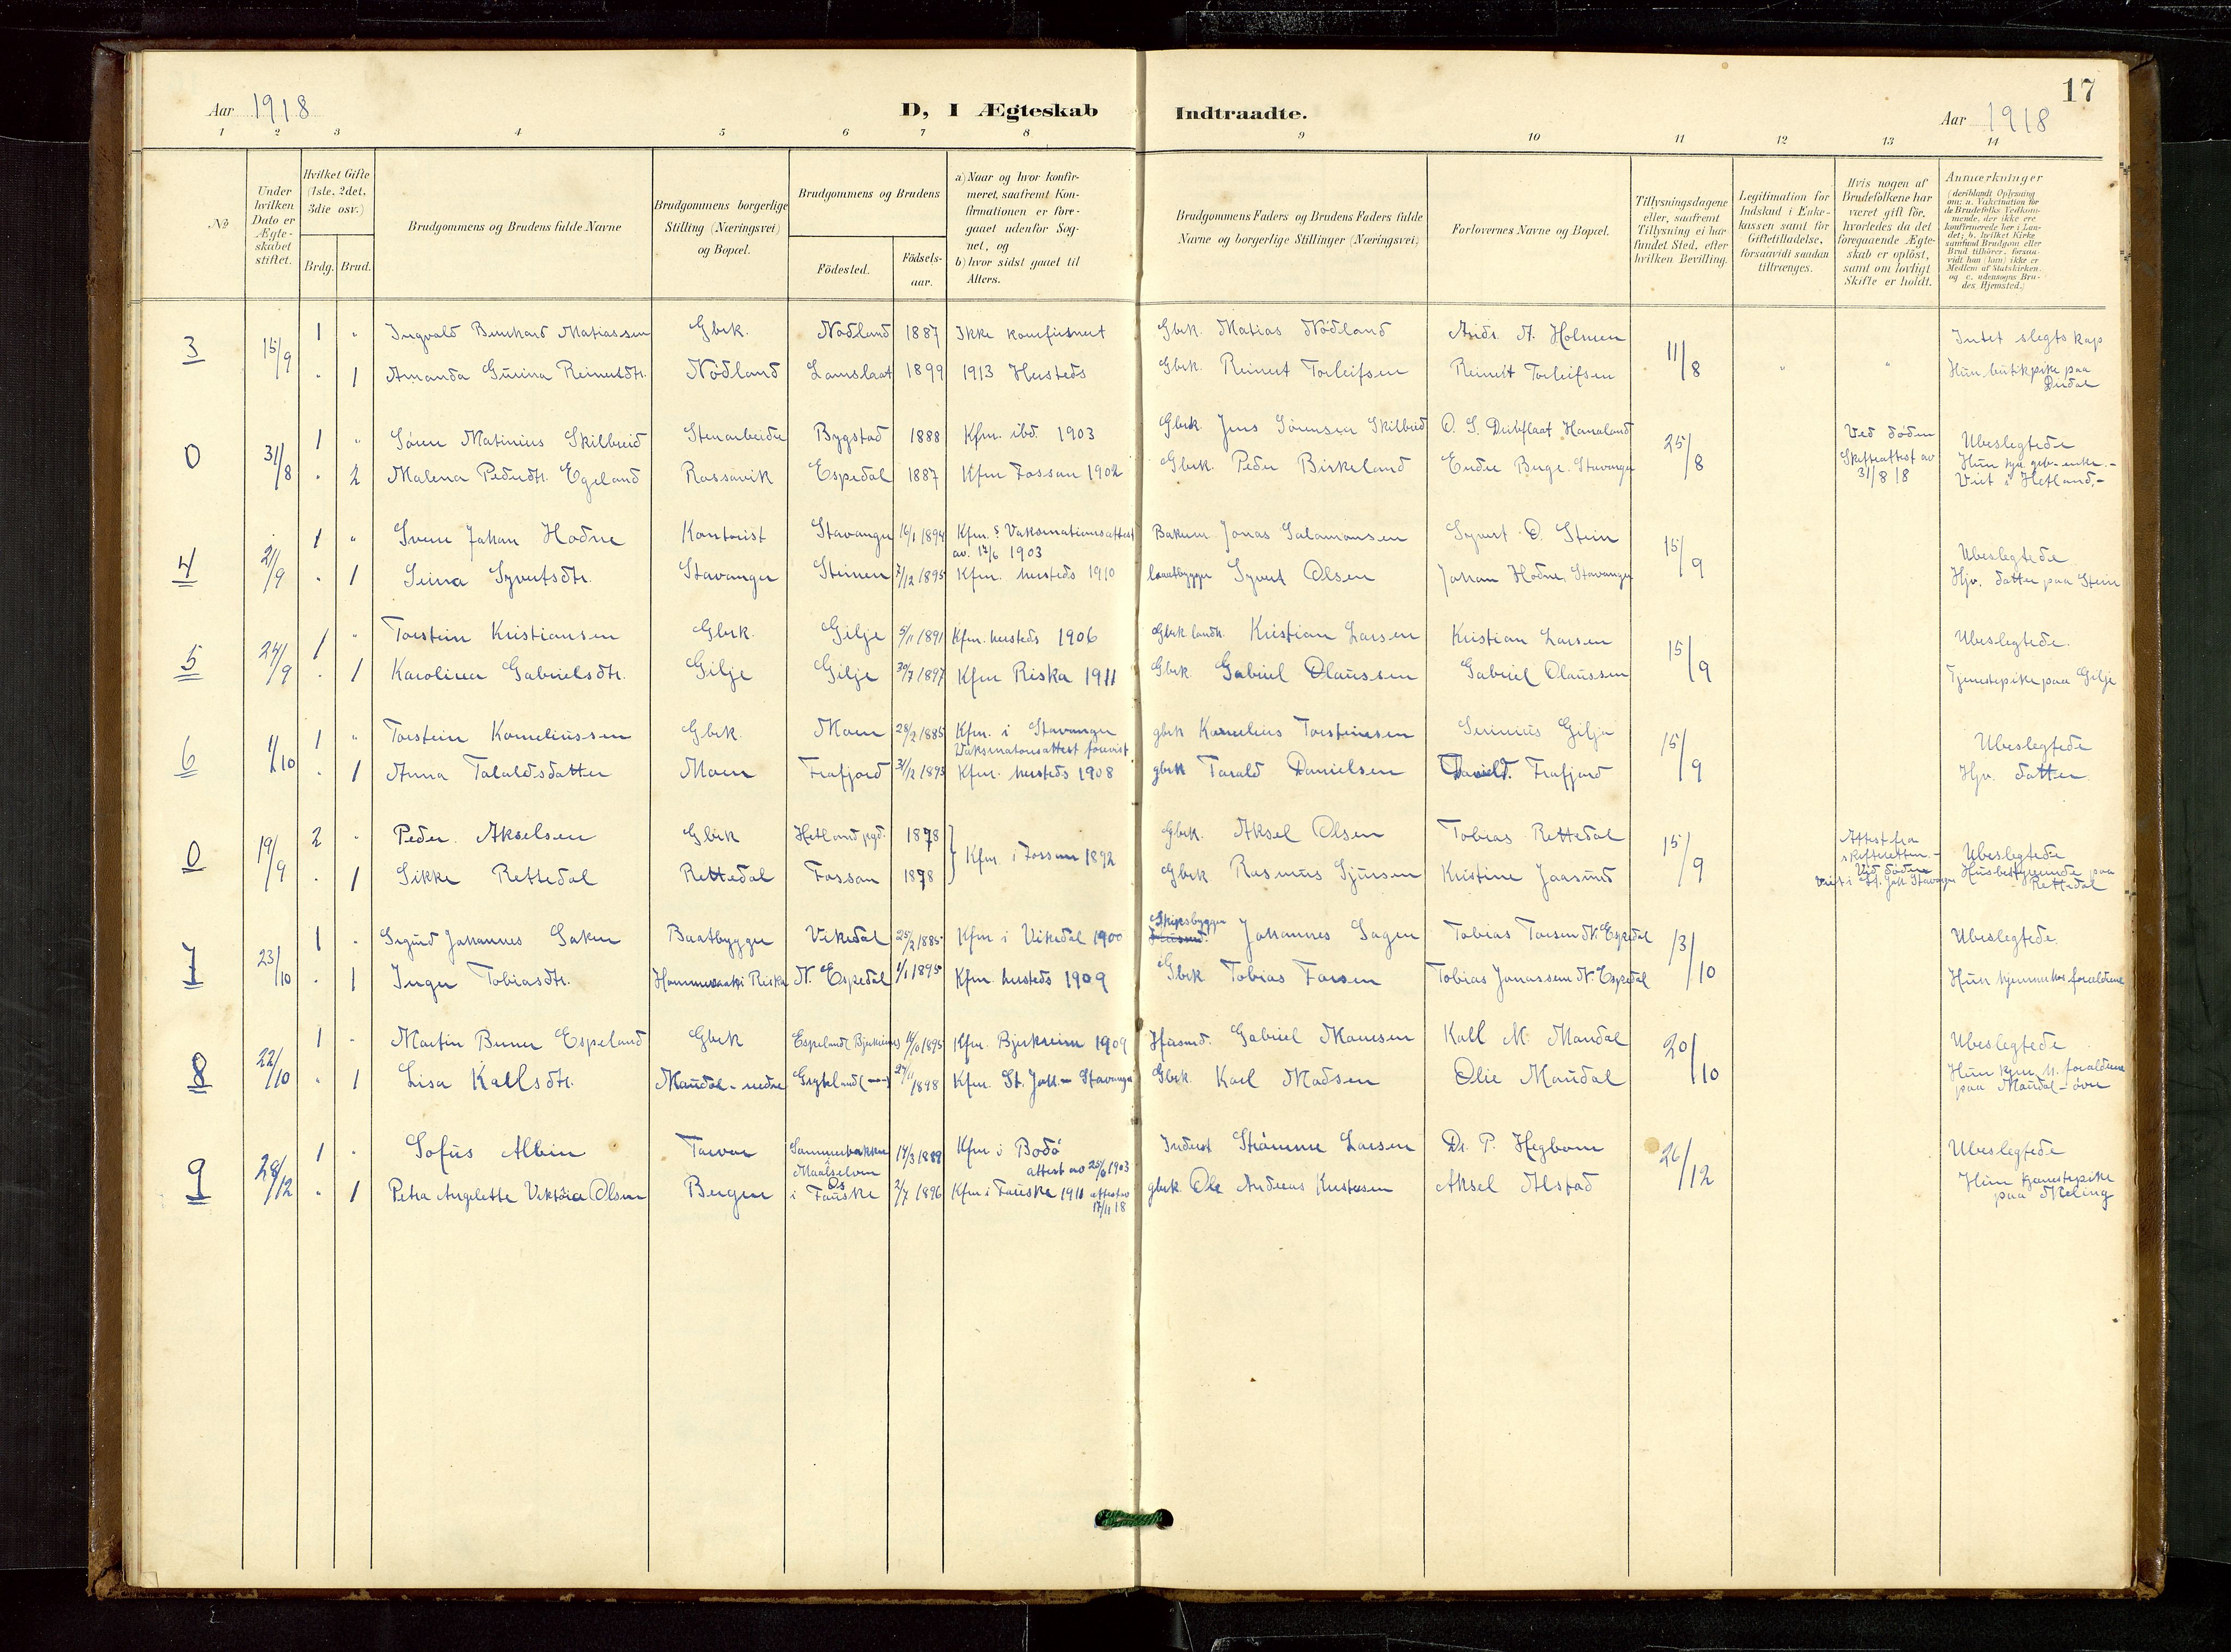 17
Aar 1918
D, I Ægteskab Indtraadte.
Aar 1918
1 2 3 4 5 6 7 8 9 10 11 12 13 14
No
Under hvilken Dato er Ægte-skabet stiftet.
Hvilket Gifte (1ste, 2det, 3die osv.)
Brdg. Brud.
Brudgommens og Brudens fulde Navne
Brudgommens borgerlige Stilling (Næringsvei) og Bopæl.
Brudgommens og Brudens
Födested. Födsels-aar.
a) Naar og hvor konfir-meret, saafremt Kon-firmationen er fore-gaaet udenfor Sog-net, og
b) hvor sidst gaaet til Alters.
Brudgommens Faders og Brudens Faders fulde Navne og borgerlige Stillinger (Næringsvei)
Forlovernes Navne og Bopæl.
Tillysningsdagene eller, saafremt Tillysning ei har fundet Sted, efter hvilken Bevilling.
Legitimation for Indskud i Enke-kassen samt for Giftetilladelse, forsaavidt saadan tiltrænges.
Hvis nogen af Brudefolkene har været gift för, hvorledes da det foregaaende Ægte-skab er oplöst, samt om lovligt Skifte er holdt.
Anmærkninger (deriblandt Oplysning om: a. Vakcination for de Brudefolks Vedkom-mende, der ikke ere konfirmerede her i Lan-det; b. hvilket Kirke-samfund Brudgom eller Brud tilhörer, forsaa-vidt han (hun) ikke er Medlem af Statskirken, og c. udensogns Bru-des Hjemsted.)
3 15/9 1 " Ingvald Bernhard Matiassen Gbrk. Nödland 1887 Ikke konfirmert Gbrk. Matias Nödland A. Holmen 11/8 " " Intet slegtskap
" 1 Amanda Gurina Reinertdtr. Nödland Lomslaat 1899 1913 Hersteds Gbrk. Reinert Torleifsen Reinert Torleifsen Hun butikpike paa Dirdal
0 31/8 1 " Sören Matinius Skilbreid Stenarbeider Bygstad 1888 Kfm. ibd. 1903 Gbrk. Jens Sörensen Skilbreid O. S. Haaland 25/8 Ved döden Skifteattest av 31/8 18 Ubeslegtede
" 2 Malena Pedersdtr. Egeland Rossavik Espedal 1887 Kfm Fossan 1902 Gbrk. Peder Birkeland Endre Berge. Stavanger Hun enke.- Viet i Hetland.-
4 21/9 1 " Sven Johan Hodne Kontorist Stavanger 16/1 1894 Kfm. ? Vaksinationsattest av. 12/6 1903 Jonas Salamonsen Syvert O. Stein 15/9 Ubeslegtede
" 1 Serina Syvertsdtr. Stavanger Steinen 7/12 1895 Kfm. hersteds 1910 baatbygger Syvert Olsen Johan Hodne, Stavanger Hjv. datter paa Stein
5 24/9 1 " Torstein Kristiansen Gbrk. Gilje 5/11 1891 Kfm. hersteds 1906 Gbrk. landh. Kristian Larsen Kristian Larsen 15/9 Ubeslegtede.
" 1 Karolina Gabrielsdtr. Gilje Gilje 30/7 1897 Kfm Riska 1911 Gbrk. Gabriel Olaussen Gabriel Olaussen Tjenestepike paa Gilje
6 1/10 1 " Torstein Korneliussen Gbrk. Moen 28/2 1885 Kfm. i Stavanger Vaksinationsattest forevist gbrk Kornelius Torsteinsen Serinius Gilje 15/9 Ubeslegtede
" 1 Anna Taraldsdatter Moen Frafjord 31/12 1893 Kfm. hersteds 1908 gbrk Tarald Danielsen Daniel T. Frafjord Hjv. datter.
0 19/9 2 " Peder Akselsen Gbrk Hetland pgd. 1878 Kfm. i Fossan 1892 Gbrk. Aksel Olsen Tobias Rettedal 15/9 Attest fra skifteretten.- Ved döden Viet i St. Joh Stavanger Ubeslegtede
" 1 Sikke Rettedal Rettedal Fossan 1878 Gbrk. Rasmus Sjursen Kristine Jaasund Husbestyrerinde paa Rettedal
7 23/10 1 " Sigurd Johannes Saken Baatbygger Vikedal 25/2 1885 Kfm i Vikedal 1900 Skipsbygger Johannes Sagen Tobias Torsen N. Espedal 13/10 Ubeslegtede
" 1 Inger Tobiasdtr. Hommersaak i Riska N. Espedal 1/1 1895 Kfm. hersteds 1909 Gbrk Tobias Torsen Tobias Jonassen N. Espedal Hun hjemme hos foreldrene
8 22/10 1 " Martin Berner Espeland Gbrk Espeland (Bjerkreims) 16/10 1895 Kfm. Bjerkreim 1909 Husmd. Gabriel Monsen Kall M. Maudal 20/10 Ubeslegtede
" 1 Lisa Kallsdtr. Maudal-nedre 27/11 1898 Kfm. St. Joh.- Stavanger Gbrk. Karl Madsen Olie Maudal Hun hjem. h. foreldrene paa Maudal-övre
9 28/12 1 " Sofus Albin Torvar Sommerbakken Maalselven 14/3 1889 Kfm i Bodö attest av 25/6 1903 Inderst Strömme Larsen Dr. P. Hegbom 26/12 Ubeslegtede
" 1 Petra Angelette Viktoria Olsen Bergen Os i Fauske 2/7 1896 Kfm i Fauske 1911 attest av 17/11 18 gbrk. Ole Andreas Kristensen Aksel Alstad Hun tjenestepike paa Meling